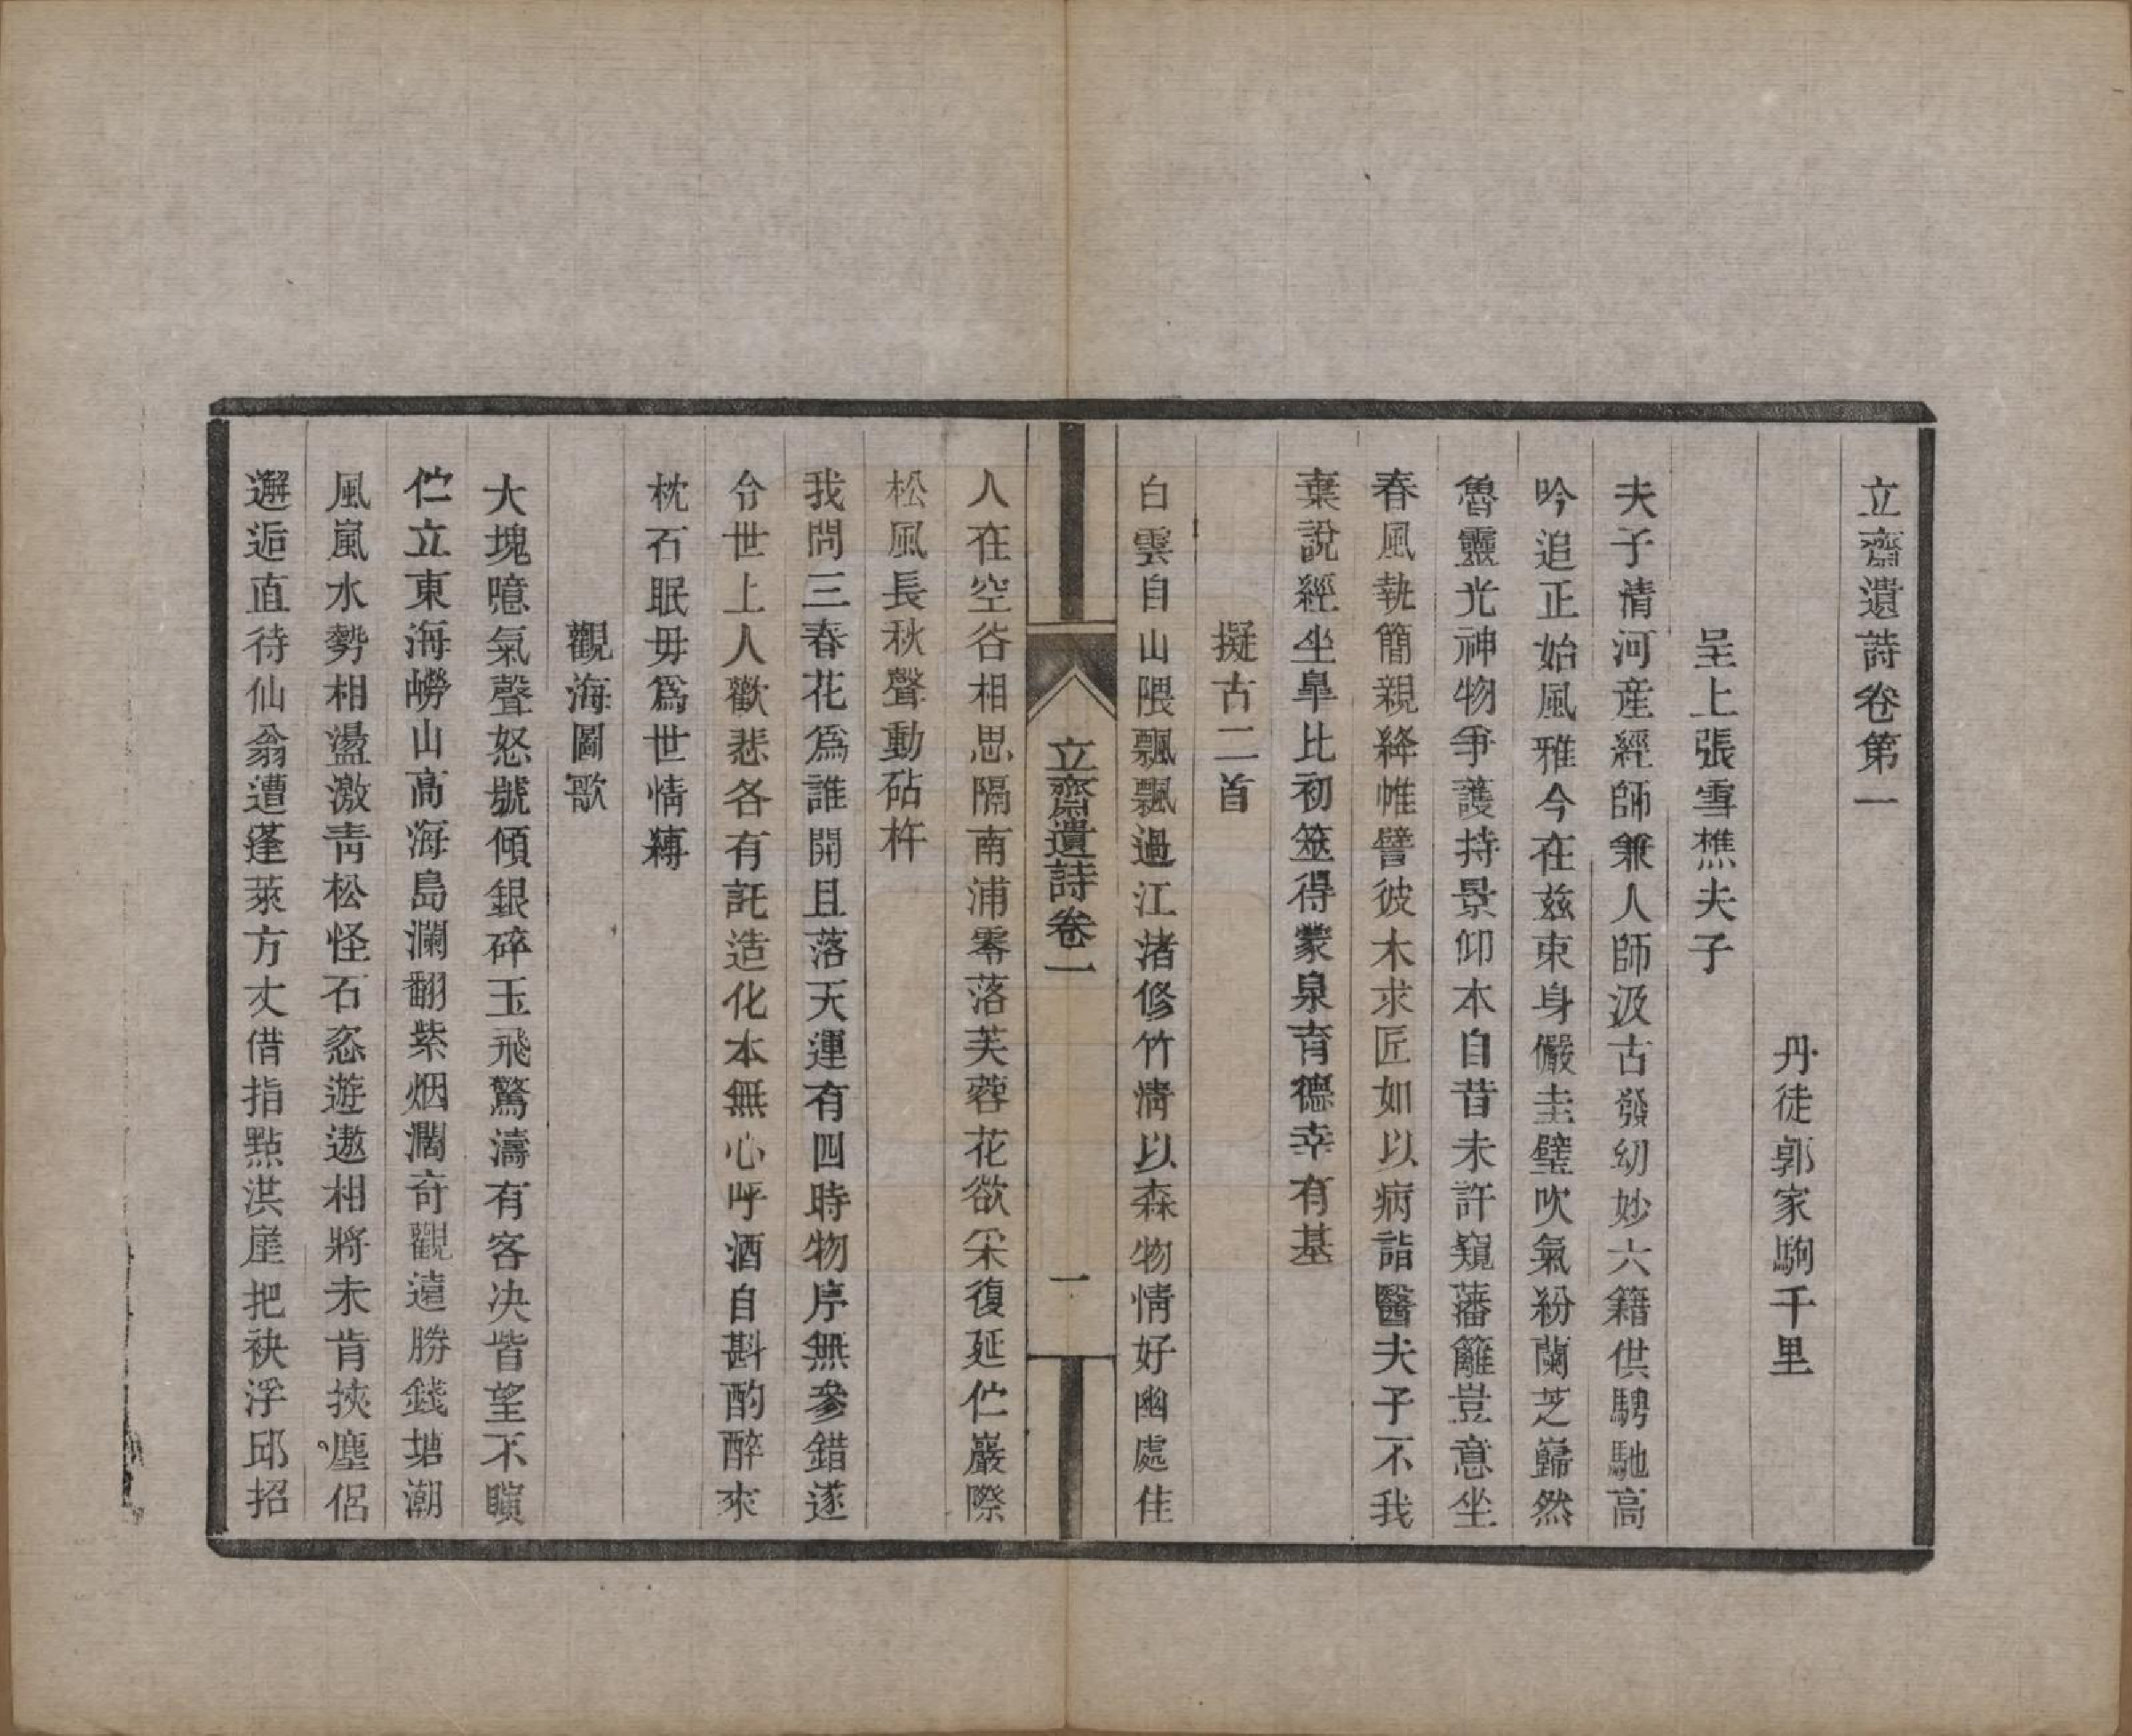 立齋遺詩卷第一
丹徒郭家駒千里
呈上張雪樵夫子
夫子清河産經師兼人師汲古發幼妙六籍供騁馳高
吟追正始風雅今在兹束身儼圭璧吹氣紛蘭芝巋然
魯靈光神物爭護持景仰本自昔未許窺藩籬豈意坐
春風執簡親絳帷譬彼木求匠如以病詣醫夫子不我
棄說經坐皐比初筮得蒙泉育德幸有基
擬古二首
白雲自山隈飄飄過江渚修竹清以森物情好幽處佳
立齋遺詩卷一
一
人在空谷相思隔南浦零落芙蓉花欲采復延伫巖際
松風長秋聲動砧杵
我問三春花爲誰開且落天運有四時物序無參錯遂
令世上人歡悲各有託造化本無心呼酒自斟酌醉來
枕石眠毋爲世情縛
觀海圖歌
大塊噫氣聲怒號傾銀碎玉飛驚濤有客决眥望不瞚
伫立東海嶗山高海島瀾翻紫烟濶奇觀遠勝錢塘潮
風嵐水勢相盪激靑松怪石恣遊遨相將未肯挾塵侣
邂逅直待仙翁遭蓬萊方丈借指點洪崖把袂浮邱招